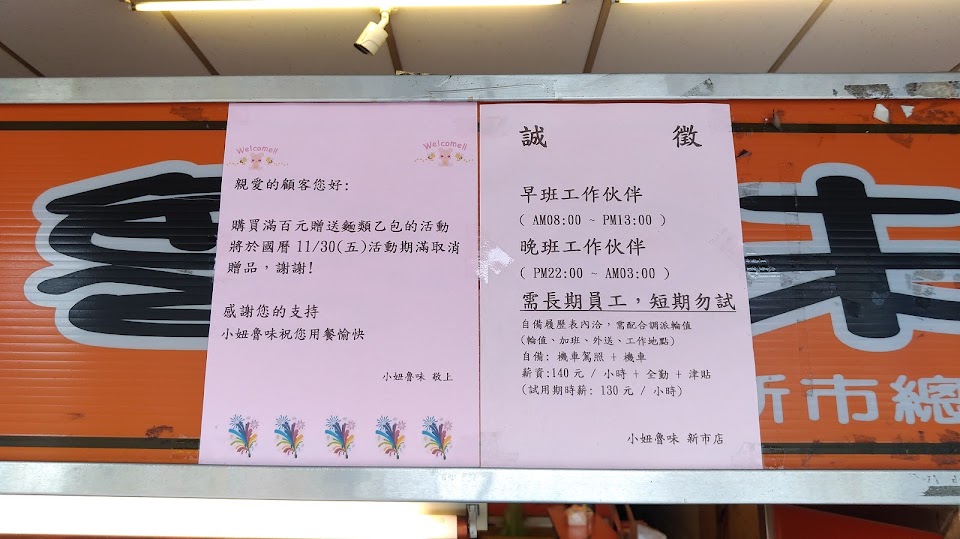 Welcome!!
Welcome!!
親愛的顧客您好:
購買滿百元贈送麵類乙包的活動
將於國曆 11/30(五)活動期滿取消
贈品，謝謝!
感謝您的支持
小妞魯味祝您用餐愉快
小妞魯味 敬上
誠 徵
早班工作伙伴
( AM08:00 ~ PM13:00 )
晚班工作伙伴
( PM22:00 ~ AM03:00 )
需長期員工，短期勿試
自備履歷表內洽，需配合調派輪值
(輪值、加班、外送、工作地點)
自備: 機車駕照 + 機車
薪資:140 元 / 小時 + 全勤 + 津貼
(試用期時薪: 130 元 / 小時)
小妞魯味 新市店
味
新市總